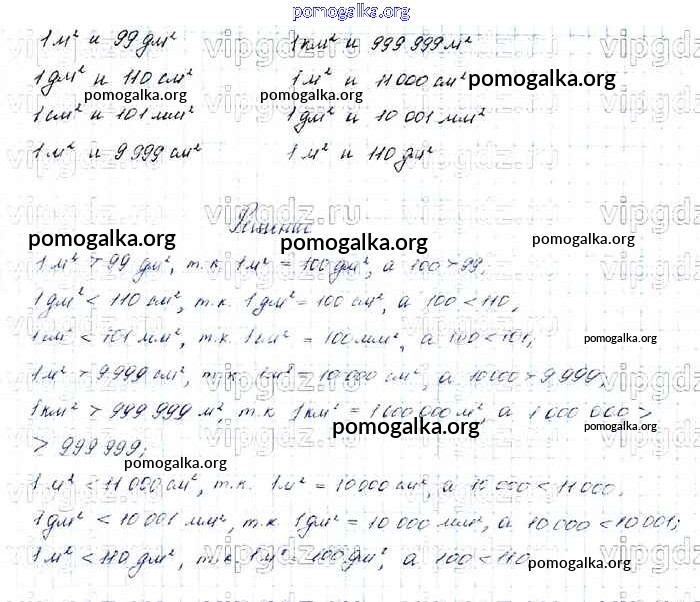 pomogalka.org
1 м² и 99 дм² 1 км² и 999 999 м²
1 дм² и 110 см² 1 м² и 11 000 см² pomogalka.org
pomogalka.org pomogalka.org
1 см² и 101 мм² 1 дм² и 10 001 мм²
1 м² и 9 999 см² 1 м² и 110 дм²
vipgdz.ru
Решение
pomogalka.org pomogalka.org pomogalka.org
1 м² > 99 дм², т.к. 1 м² = 100 дм², а 100 > 99;
1 дм² < 110 см², т.к. 1 дм² = 100 см², а 100 < 110,
1 см² < 101 мм², т.к. 1 см² = 100 мм², а 100 < 101; pomogalka.org
1 м² > 9 999 см², т.к. 1 м² = 10 000 см², а 10 000 > 9 999;
1 км² > 999 999 м², т.к 1 км² = 1 000 000 м², а 1 000 000 >
pomogalka.org pomogalka.org
> 999 999;
pomogalka.org
1 м² < 11 000 см², т.к. 1 м² = 10 000 см², а 10 000 < 11 000.
1 дм² < 10 001 мм², т.к. 1 дм² = 10 000 мм², а 10 000 < 10 001;
1 м² < 110 дм², т.к. 1 м² = 100 дм², а 100 < 110 pomogalka.org